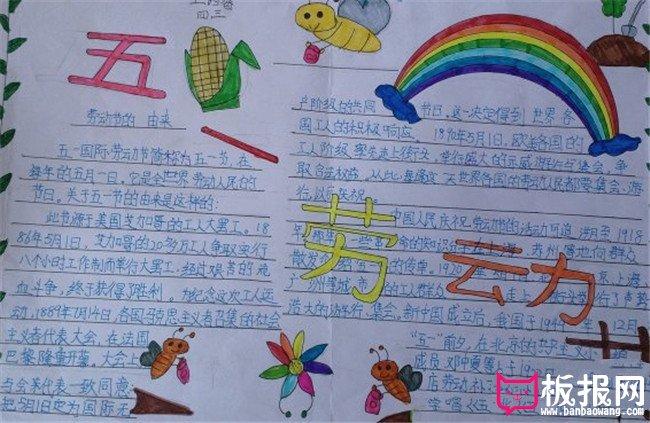 五
劳动节的 由来
五一国际劳动节简称为五一节，在
每年的五月一日。它是全世界劳动人民的
节日。关于五一节的由来是这样的：
此节源于美国芝加哥的工人大罢工。18
86年5月1日，芝加哥的20多万工人争取实行
八个小时工作制而举行大罢工，经过艰苦的流
血斗争，终于获得了胜利。为纪念这次工人运
动，1889年7月14日，各国马克思主义者召集的社会
主义者代表大会，在法国
巴黎隆重开幕。大会上
与会代表一致同意：
把5月1日定为国际无
产阶级的共同 节日。这一决定得到世界各
国工人的积极响应。1890年5月1日，欧美各国的
工人阶级率先走上街头，举行盛大的示威游行与集会，争
取合法权益。从此，每逢这一天世界各国的劳动人民都要集会、游
行，以示庆祝。
中国人民庆祝劳动节的活动可追溯至1918
年 一些 命的知识 在上海 苏州 等地向群众
散发 的传单。1920 上海
广州 等城市的工人群众 走上街头 举行了声势
浩大的游行、集会。新中国成立后，我国于1949年 12月
"五一"前夕，在北京的共产主义小
成员邓中夏等
店劳动补习
学唱《五一
劳动
板报网
www.banbaowang.com